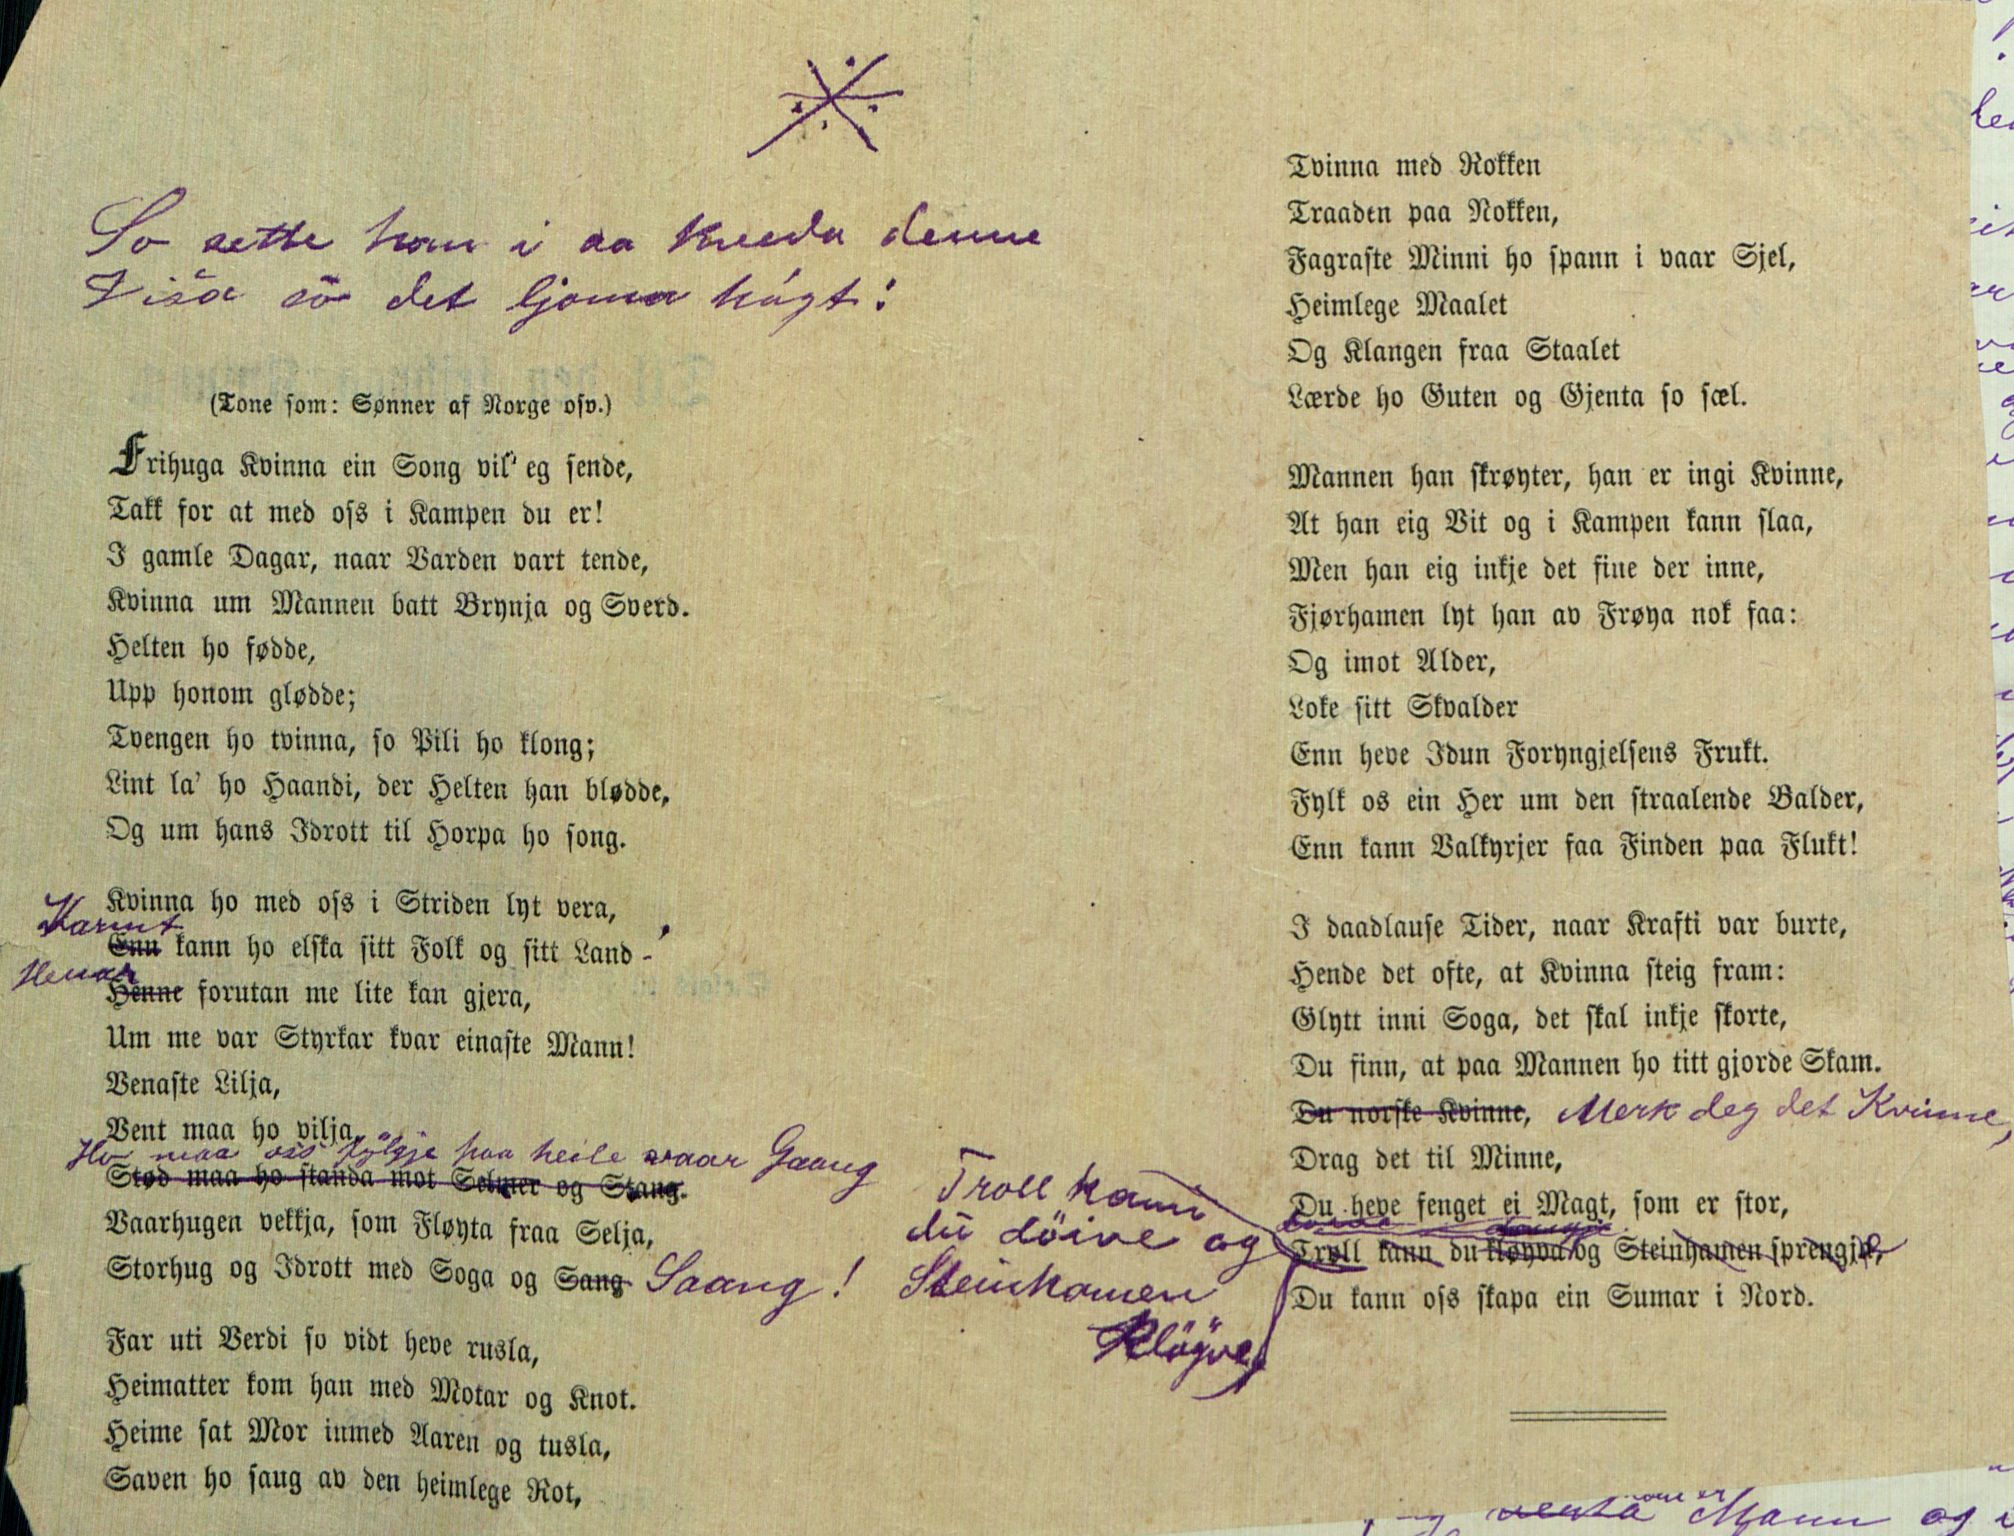 So sette han i aa kveda denne
Visa so det ljoma högt:
(Tone som: Sønner af Norge osv.)
Frihuga Kvinna ein Song vil' eg sende,
Takk for at med oss i Kampen du er!
I gamle Dagar, naar Varden vart tende,
Kvinna um Mannen batt Brynja og Sverd.
Helten ho fødde,
Upp honom glødde;
Tvengen ho tvinna, so Pili ho klong;
Lint la' ho Haandi, der Helten han blødde,
Og um hans Idrott til Horpa ho song.
Kvinna ho med oss i Striden lyt vera,
Varmt
Enn kann ho elska sitt Folk og sitt Land -
Henar
Henne forutan me lite kan gjera,
Um me var Styrkar kvar einaste Mann!
Venaste Lilja,
Vent maa ho vilja,
Ho maa oss fölgje paa heile vaar Gaang
Stød maa ho standa mot Selmer og Stang.
Vaarhugen vekkja, som Fløyta fraa Selja,
Storhug og Idrott med Soga og Sang. Saang!
Far uti Verdi so vidt heve rusla,
Heimatter kom han med Motar og Knot.
Heime sat Mor inmed Aaren og tusla,
Saven ho saug av den heimlege Rot,
Tvinna med Rokken
Traaden paa Nokken,
Fagraste Minni ho spann i vaar Sjel,
Heimlege Maalet
Og Klangen fraa Staalet
Lærde ho Guten og Gjenta so sæl.
Mannen han skrøyter, han er ingi Kvinne,
At han eig Vit og i Kampen kann slaa,
Men han eig inkje det fine der inne,
Fjørhamen lyt han av Frøya nok faa:
Og imot Alder,
Loke sitt Skvalder
Enn heve Idun Foryngjelsens Frukt.
Fylk os ein Her um den straalende Balder,
Enn kann Valkyrjer faa Finden paa Flukt!
I daadlause Tider, naar Krafti var burte,
Hende det ofte, at Kvinna steig fram:
Glytt inni Soga, det skal inkje skorte,
Du finn, at paa Mannen ho titt gjorde Skam.
Du norske Kvinne, Merk deg det Kvinne,
Drag det til Minne,
Du heve fenget ei Magt, som er stor,
Troll kann du kløyva og Steinhamen sprengja,
Troll kann
du döive og
Steinhamen
klöyve,
Du kann oss skapa ein Sumar i Nord.
Mann og